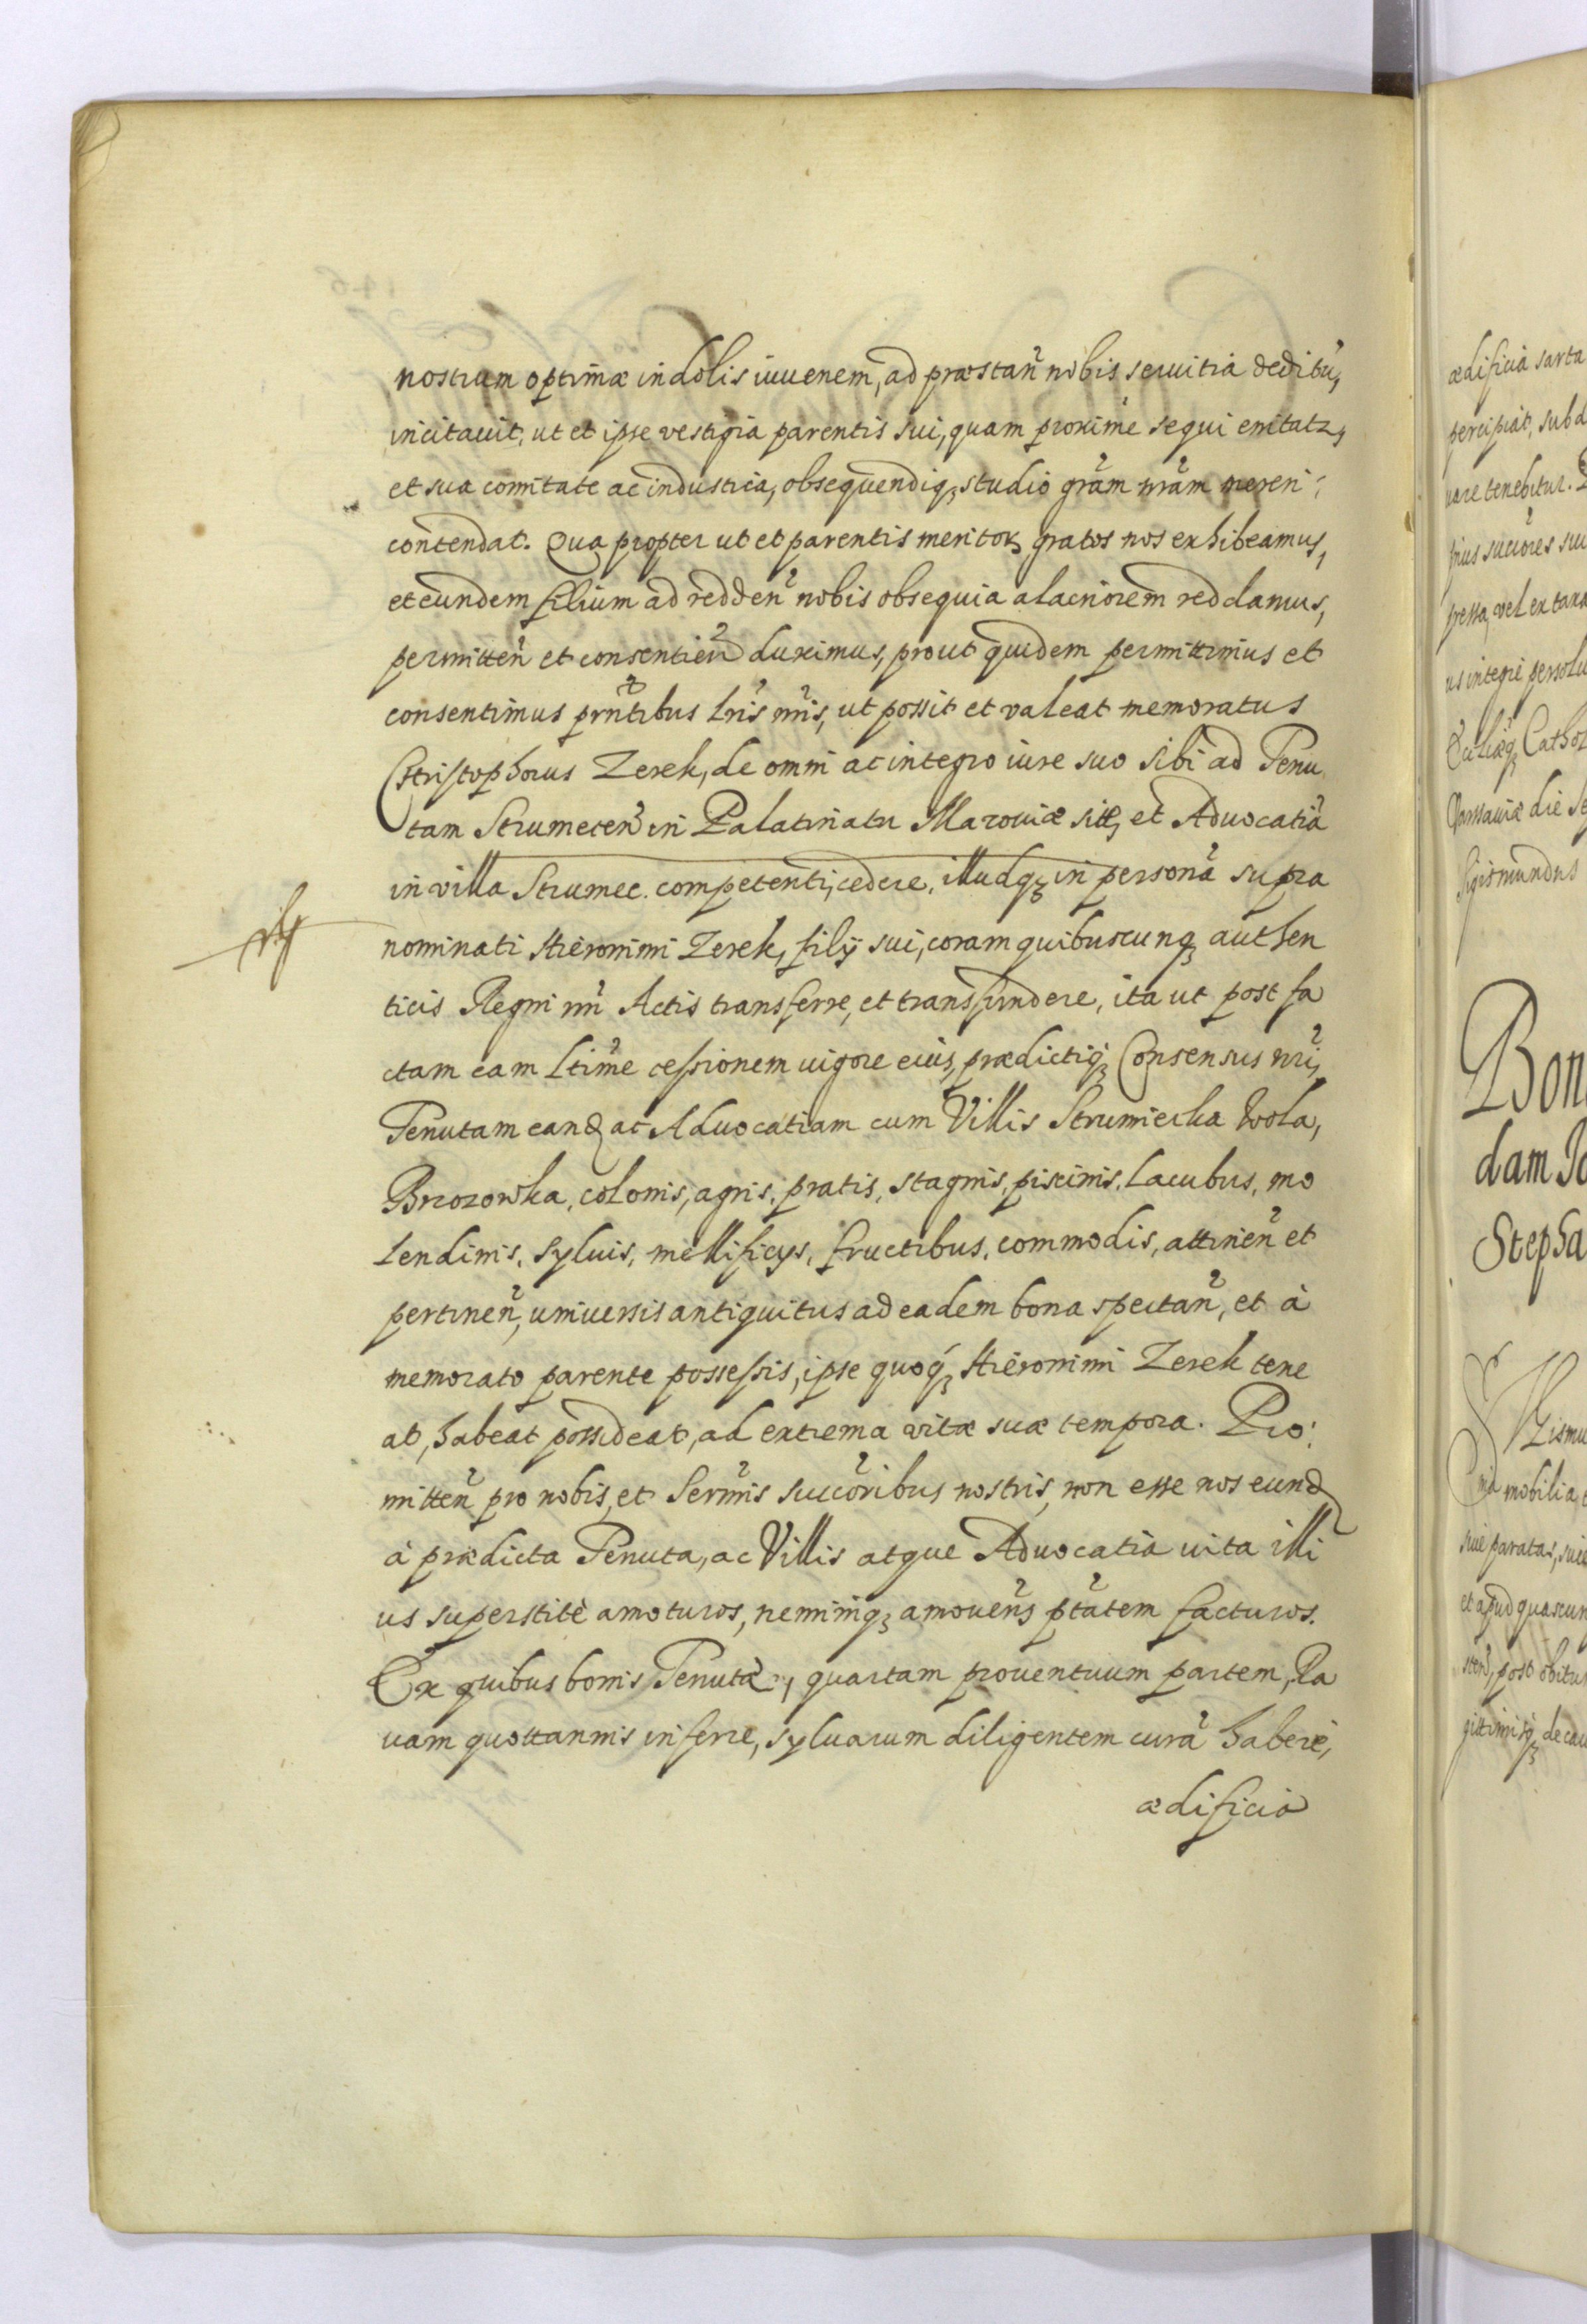 nostrum optimæ indolis iuuenem, ad præstan̄ nobis seruitia deditū,
incitauit, ut et ipse vestigia parentis sui, quam proxime sequi enitatz,
et sua comitate ac industria, obsequendiqꝫ studio grām nrām mereri
contendat. Quapropter ut et parentis meritoꝝ gratos nos exhibeamus,
et eundem filium ad redden̄ nobis obsequia alacriorem reddamus,
permitten̄ et consentien̄ duximus, prout quidem permittimus et
consentimus prn̄tibus lris̄ nris̄, ut possit et valeat memoratus
Christophorus Zerek, de omni ac integro iure suo sibi ad Tenu
tam Strumecen̄ in Palatinatu Mazouiæ sitę, et Aduocatiā
in villa Strumec. competenti, cedere, illudqꝫ in personā supra
nominati Hieronimi Zerek, filij sui, coram quibuscunqꝫ authen
ticis Regni nri̅ Actis transferre, et transfundere, ita ut post fa
ctam eam ltime̅ cessionem uigore eius, prædictiqꝫ Consensus nri̅,
Tenutam eand ac Aduocatiam cum Villis Strumiecka Wola,
Brzozowka, colonis, agris, pratis, stagnis, piscinis, lacubus, mo
lendinis, syluis, mellificys, fructibus, commodis, attinen̄ et
pertinen̄, uniuersis antiquitus ad eadem bona spectan̄, et à
memorato parente possessis, ipse quoqꝫ Hieronimi Zerek tene
at, habeat possideat, ad extrema vitæ suæ tempora. Pro
mitten̄ pro nobis, et Sermis̄ succōribus nostris, non esse nos eund
à prædicta Tenuta, ac Villis atque Aduocatia uita illi
us superstite amoturos, neminiqꝫ amouen̄s ptātem facturos.
Ex quibus bonis Tenutæ, quartam prouentuum partem, Ra
uam quottannis inferre, syluarum diligentem curā habere,
ædificia
ædificia sarta
percipiat, sub d
uare tenebitur.
prius succōres su
us integre persolu
Cathol
Varsauiæ die
Sigismundus
Bon
dam Jo
Stepha
mobilia
siue paratas,
et apud quascun
post obitus